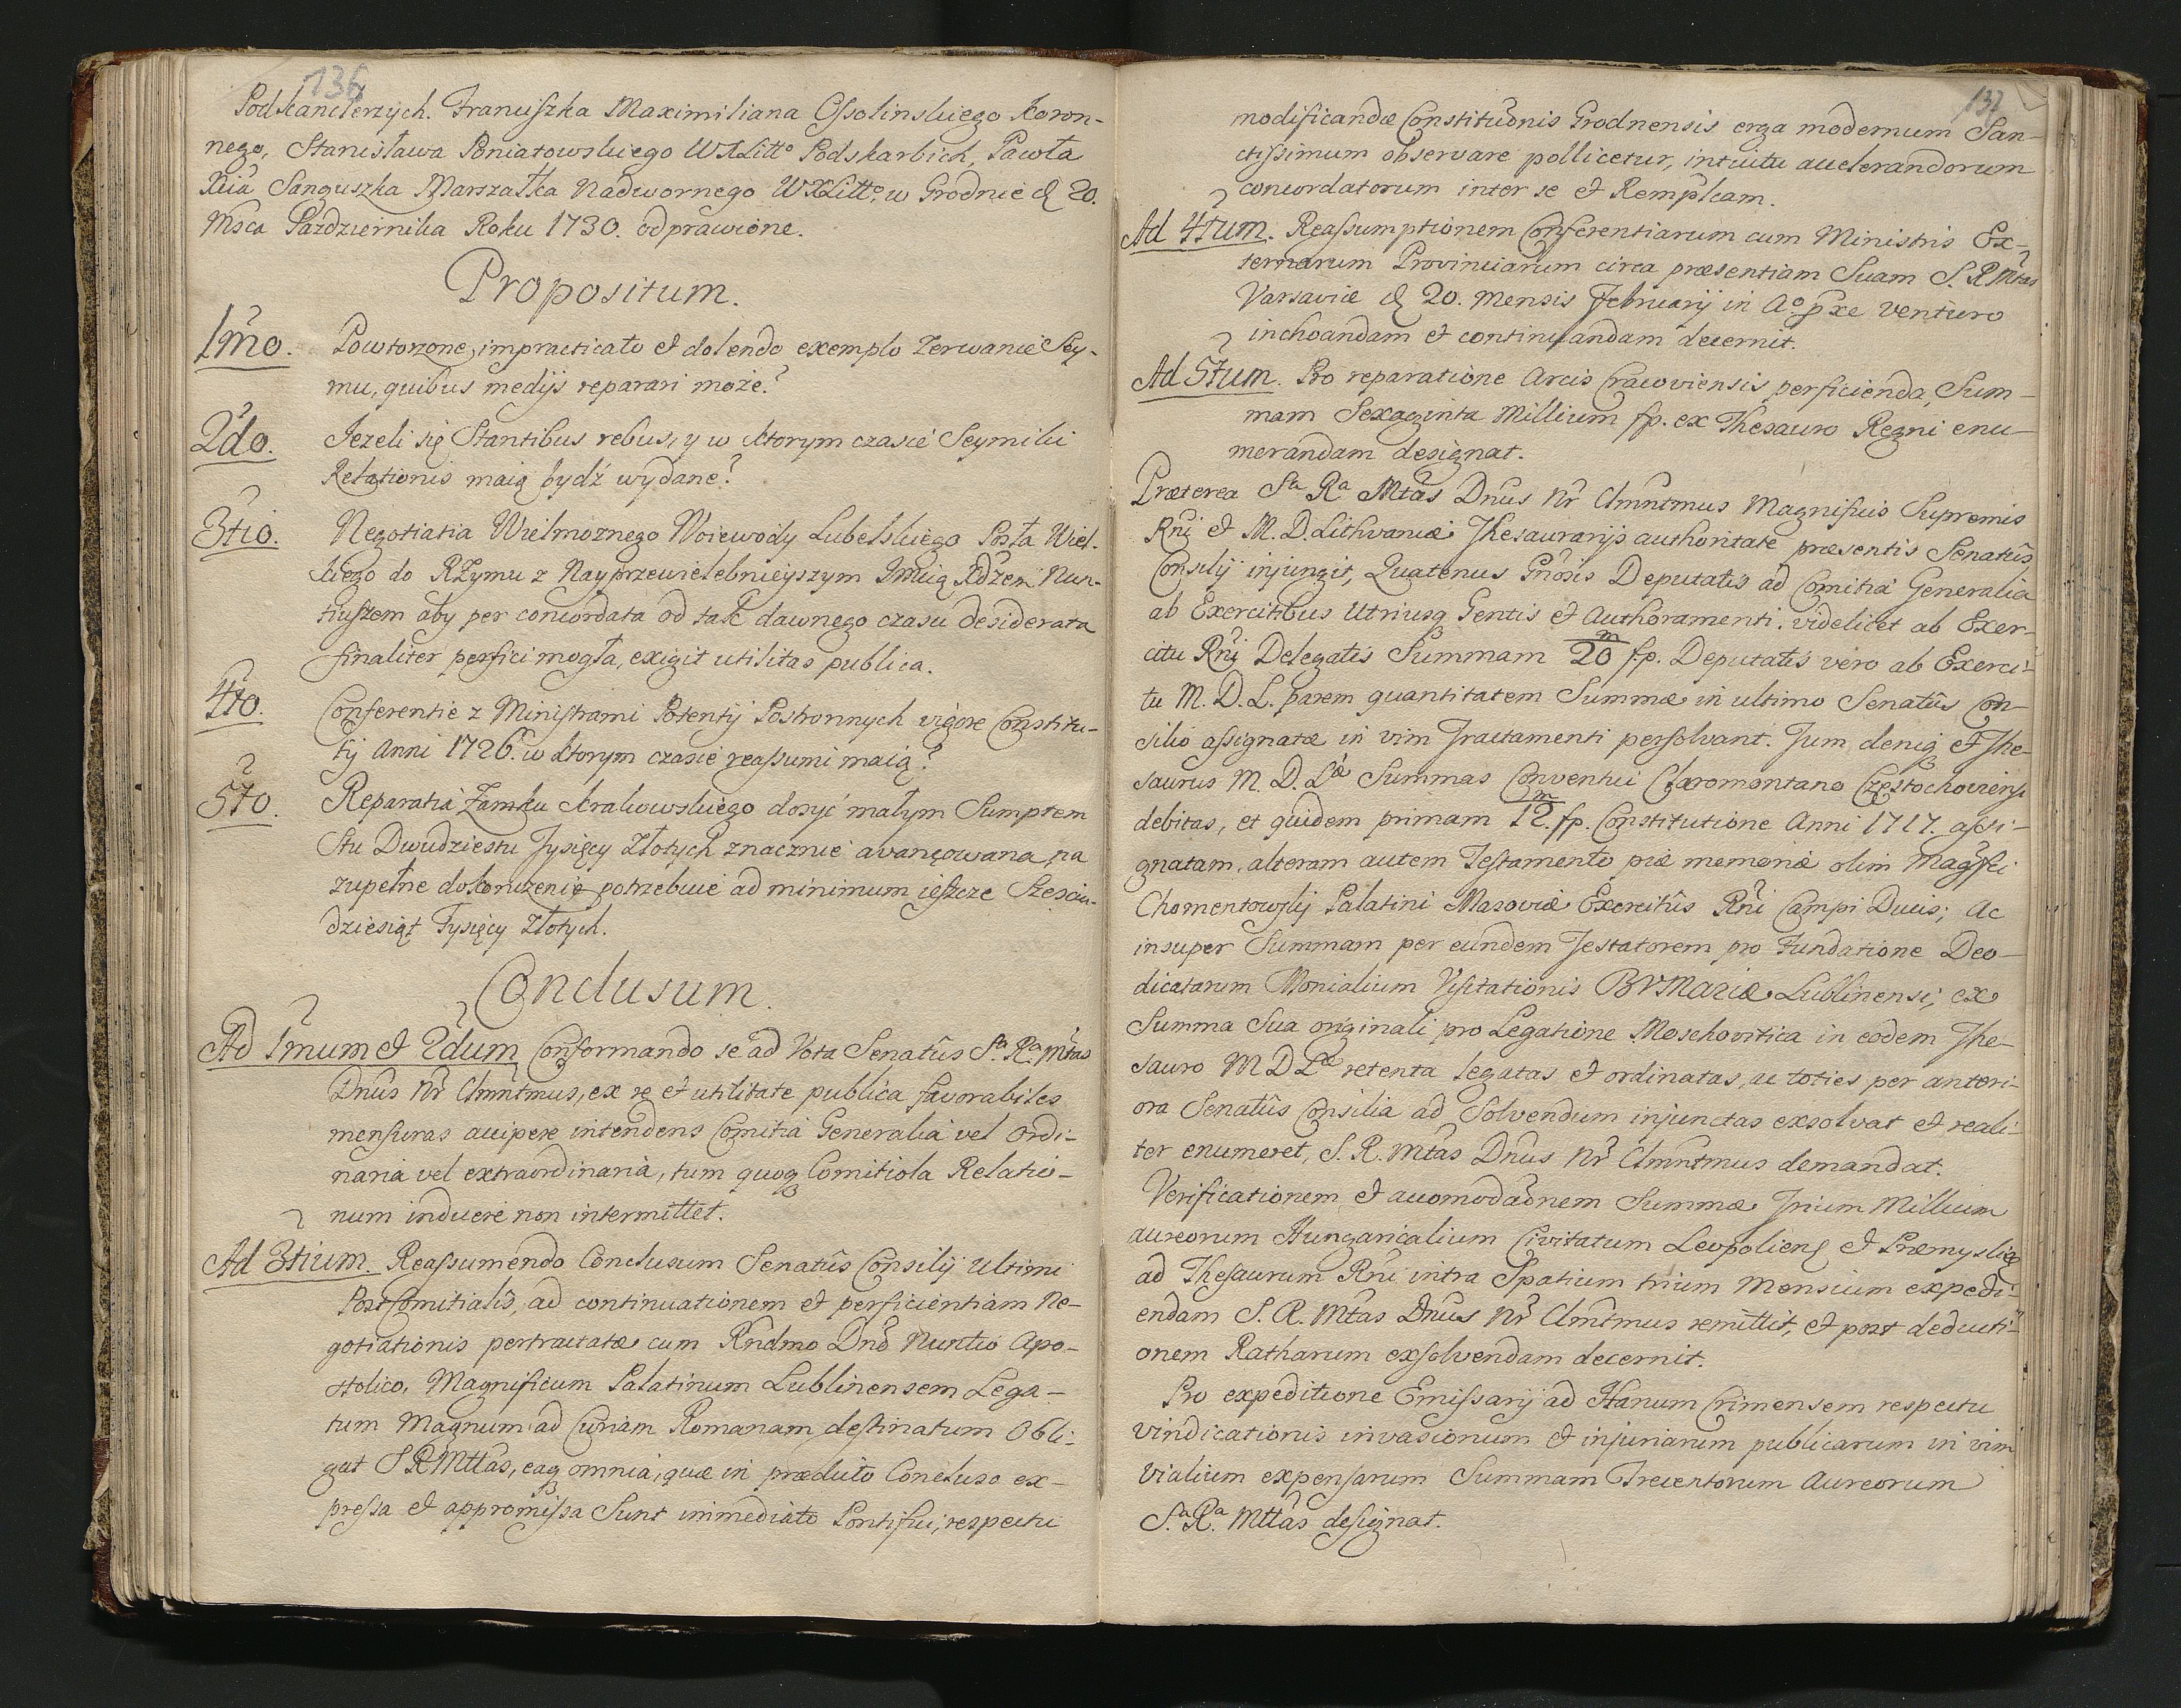 136
Podskanclerzych. Franuszka Maximiliana Ossolinskiego Koron-
nego, Stanisława Poniatowskiego WXLitto Podskarbich, Pawła
Xcia Sanguszka Marszałka Nadwornego WXLitto, w Grodnie d 20.
Msca Pazdziernika Roku 1730. odprawione.
Propositum.
1mo. Powtorzone, impracticato et dolendo exemplo Zerwanie Sey-
mu, quibus medijs reparari może?
2do. Jezeli się Stantibus rebus, y w ktorym czasie Seymiki
Relationis maią bydź wydane?
3tio. Negotiatia Wielmoznego Woiewody Lubelskiego Posła Wiel-
kiego do RZymu z Nayprzewielebnieyszym Jmcią Xdzem Nun-
tiuszem aby per concordata od tak dawnego czasu desiderata
finaliter perfici mogła, exigit utilitas publica.
4to. Conferentie z Ministrami Potentij Postronnych vigore Constitu-
tij Anni 1726. w ktorym czasie reassumi maią?
5to. Reparatia Zamku Krakowskiego dosyć małym Sumptem
Stu Dwudziestu Tysięcy Złotych znacznie avançowana, na
zupełne dokonczenie potrzebuie ad minimum ieszcze Szescu-
dziesiąt Tysięcy Złotych.
Conclusum.
Ad 1mum et 2dum Conformando se ad Vota Senatûs Sa. Ra. Mtas
Dnus Nr Clmntmus, ex re et utilitate publica favorabiles
mensuras accipere intendens Comitia Generalia vel ordi-
naria vel extraordinaria, tum quoq Comitiola Relatio-
num inducere non intermittet.
Ad 3tium. Reassumendo Conclusum Senatûs Consilij Ultimi
PostComitialis, ad continuationem et perficientiam Ne-
gotiationis pertractatæ cum Rndmo Dno Nuntio Apo-
stolico, Magnificum Palatinum Lublinensem Lega-
tum Magnum ad Curiam Romanam destinatum Obli-
gat S R Mttas, eaq omnia, quæ in præducto Concluso ex-
pressa et appromissa Sunt immediate Pontifici, respectu
137
modificandæ Constituonis Grodnensis erga modernum San-
ctissimum observare pollicetur, intuitu accelerandorum
concordatorum inter se et Remplicam.
Ad 4tum. Reassumptionem Conferentiarum cum Ministris Ex-
ternarum Provinciarum circa præsentiam Suam S. R Mtas
Varsaviæ d 20. mensis Februarij in Ao. pxe venturo
inchoandam et continuandam decernit.
Ad 5tum. Pro reparatione Arcis Cracoviensis perficienda, Sum-
mam Sexaginta Millium fp. ex Thesauro Regni enu-
merandam designat.
Præterea Sa Ra Mtas Dnus Nr Clmntmus Magnificis Supremis
Rni et M. D. Lithvaniæ Thesaurarijs authoritate præsentis Senatûs
Consilij injungit, Quatenus Gnosis Deputatis ad Comitia Generalia
ab Exercitibus Utriusq Gentis et Authoramenti. videlicet ab Exer-
citu Rni Delegatis Summam 20 m fp. Deputatis vero ab Exerci-
tu M. D. L. parem quantitatem Summæ in ultimo Senatûs Con-
silio assignatæ in vim Tractamenti persolvant. Tum deniq et The-
saurus M. D. Læ Summas Conventui Claromontano Częstochoviensi
debitas, et quidem primam 12 m fp. Constitutione Anni 1717. assi-
gnatam, alteram autem Testamento piæ memoriæ olim Magfci
Chomentowskij Palatini Masoviæ Exercitûs Rni Campi Ducis; Ac
insuper Summam per eundem Testatorem pro Fundatione Deo-
dicatarum Monialium Visitationis BVMariæ Lublinensi, ex
Summa Sua originali pro Legatione Moschovitica in eodem The-
sauro M D Læ retenta legatas et ordinatas, ac toties per anteri-
ora Senatûs Consilia ad Solvendum injunctas exsolvat et reali-
ter enumeret, S. R. Mtas Dnus Nr Clmntmus demandat.
Verificationem et accomodaonem Summæ Trium Millium
aureorum Hungaricalium Civitatum Leopoliens et Præmysliæ
ad Thesaurum Rni intra Spatium trium Mensium expedi-
endam S. R. Mtas Dnus Nr Clmtmus remittit, et post deducti-
onem Ratharum exsolvendam decernit.
Pro expeditione Emissarij ad Hanum Crimensem respectu
vindicationis invasionum et injuriarum publicarum in vim
Vialium expensarum Summam Trecentorum Aureorum
Sa. Ra. Mttas designat.